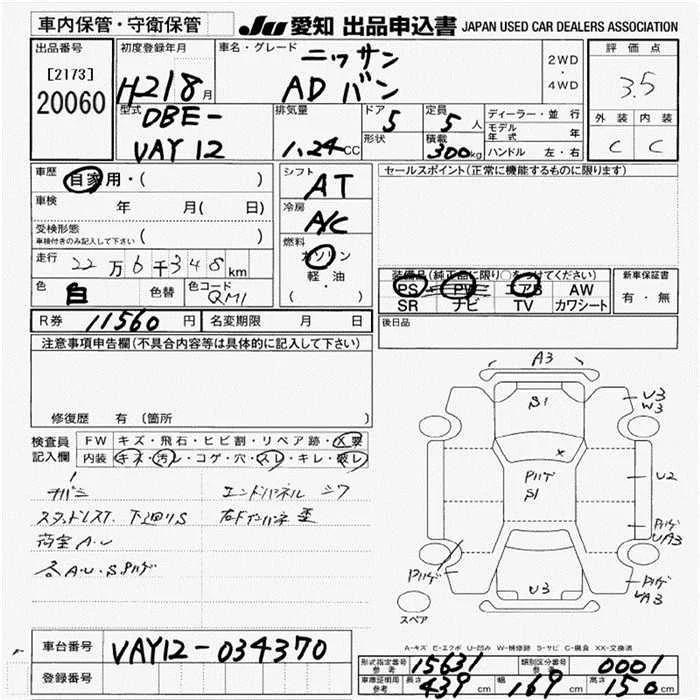 車内保管・守衛保管
JU 愛知 出品申込書 JAPAN USED CAR DEALERS ASSOCIATION
出品番号
[2173]
20060
初度登録年月
H21 8月
車名・グレード
ニッサン
ADバン
2WD
・
4WD
評価点
3.5
外装 内装
C C
型式
DBE-
VAY12
排気量
1.24CC
ドア
5
定員
5人
形状
積載
300kg
ディーラー・並行
モデル年式 年
ハンドル 左・右
車歴
自家用・( )
車検 年 月( 日)
受検形態
車検付きのみ記入して下さい ( )
走行 22万6千348km
色 白 色替
色コード
QM1
シフト
AT
冷房
A/C
燃料
ガソリン
軽・油
( )
セールスポイント(正常に機能するものに限ります)
装備品(純正品に限り○をつけてください)
PS PW エアB AW
SR ナビ TV カワシート
新車保証書
有・無
R券 11560円 名変期限 月 日
後日品
注意事項申告欄(不具合内容等は具体的に記入して下さい)
修復歴 有 (箇所
検査員
記入欄
FW キズ・飛石・ヒビ割・リペア跡・X要
内装 キズ・汚レ・コゲ・穴・スレ・キレ・破レ
エンドパネル シワ
下廻りS
荷室 A.U
A.U.S
A3
S1
U3
W3
U2
S1
UA3
U3
UA3
スペア
A-キズ E-エクボ U-凹み W-補修跡 S-サビ C-腐食 XX-交換済
車台番号 VAY12-034370
登録番号
形式指定番号 参考 15631 類別区分番号 参考 0001
車庫証明用 参考 長さ 439cm 幅 169cm 高さ 150cm